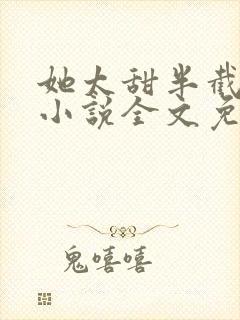 她太甜半截
小说全文免
鬼嘻嘻